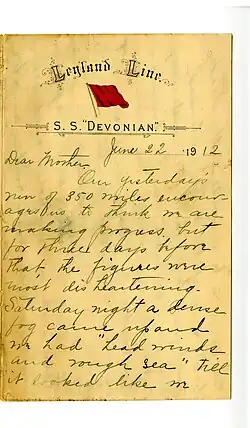 Leyland Line.
S. S. "DEVONIAN."
June 22 1912
Dear Mother
Our yesterday's
run of 350 miles encour
ages us to think we are
making progress, but
for three days before
that the figures were
most disheartening.
Saturday night a dense
fog came up and
we had "head winds
and rough sea" till
it looked like we